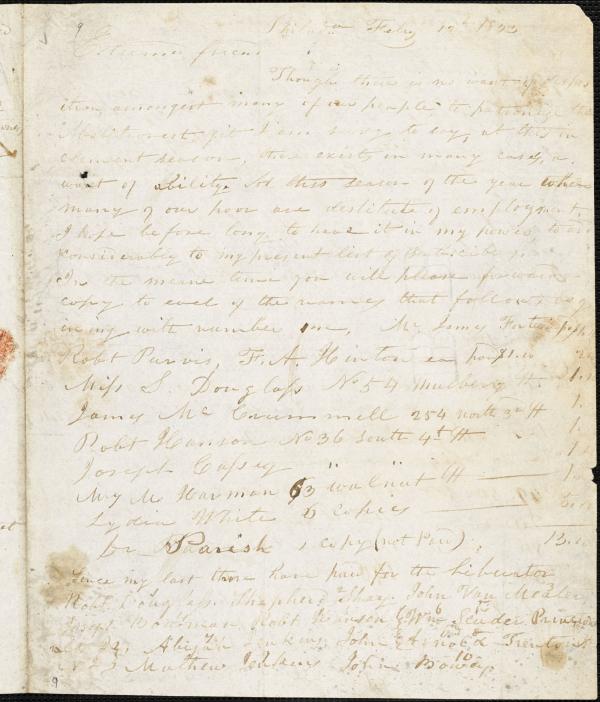 Philada Feby 12th 1833
Esteemed friend
Though there is no want of dispos
ition amongest many of our people to patronize the
Abolitionest, yet I am sorry to say, at this in
clement season, there exists in many cases, a
want of ability. At this season of the year when
many of our poor are destitute of employment.
I hope before long to have it in my power to add
considerably to my present list of Subscribers.
In the mean time you will please forward a
copy to each of the names that follow, beg
ining with number one, Mr James Forten
Robt Purvis, F. A. Hinton ea
Miss S. Douglass No 54 Mulberry St
James Mc Crummell 254 north 3d St
Robt Hanson No 36 South 4th St
Joseph Cassey " "
Mr Harman 63 walnut St
Lydia White 5 copies
for Parish 1 copy (not Paid)
13.00
Since my last these have paid for the Liberator
Robt Douglass. Shepherd Shay. John Van Meter
Joseph Bowman Robt Hanson & Wm
Abijah Jenkins John Arnold Trenton
Mathew Jenkins John Boway
9